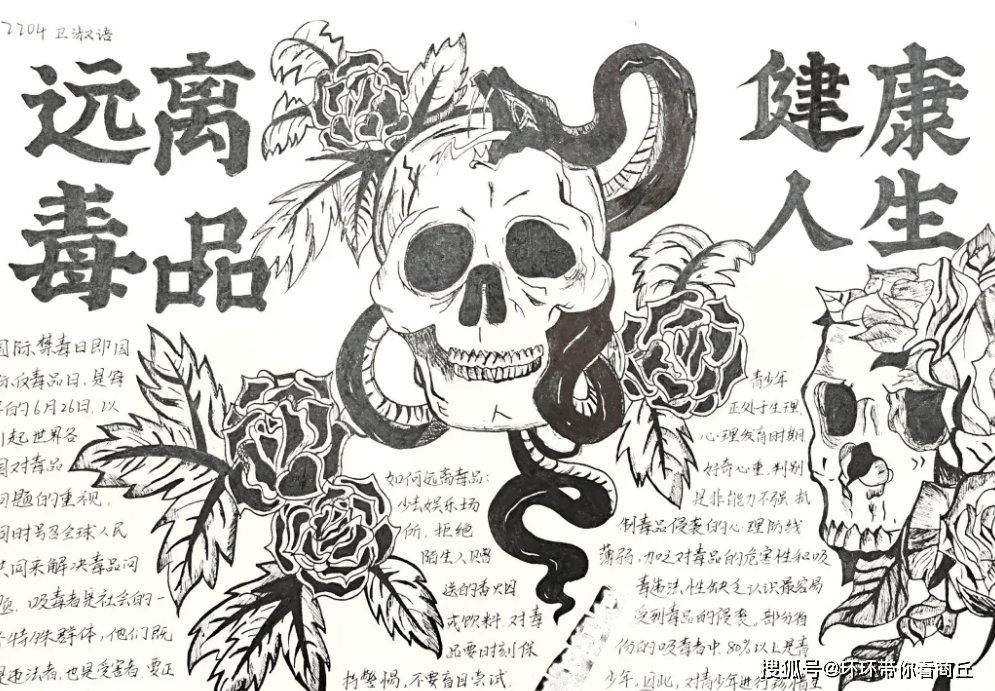 2204 卫淑语
远离
毒品
健康
人生
国际禁毒日即国
际反毒品日,是每
年的6月26日,以
引起世界各
国对毒品
问题的重视,
同时号召全球人民
共同来解决毒品问
题。吸毒者是社会的一
个特殊群体,他们既
是违法者,也是受害者,要正
如何远离毒品:
少去娱乐场
所,拒绝
陌生人赠
送的香火因
式饮料,对毒
品要时刻保
持警惕,不要盲目尝试.
青少年
正处于生理,
心理发育时期
好奇心重,判别
是非能力不强,抗
制毒品侵袭的心理防线
薄弱,加之对毒品的危害性和吸
毒违法性缺乏认识最容易
受到毒品的侵袭。部分省
份的吸毒者中,80%以上是青
少年,因此,对青少年进行
搜狐号@环环带你看商丘